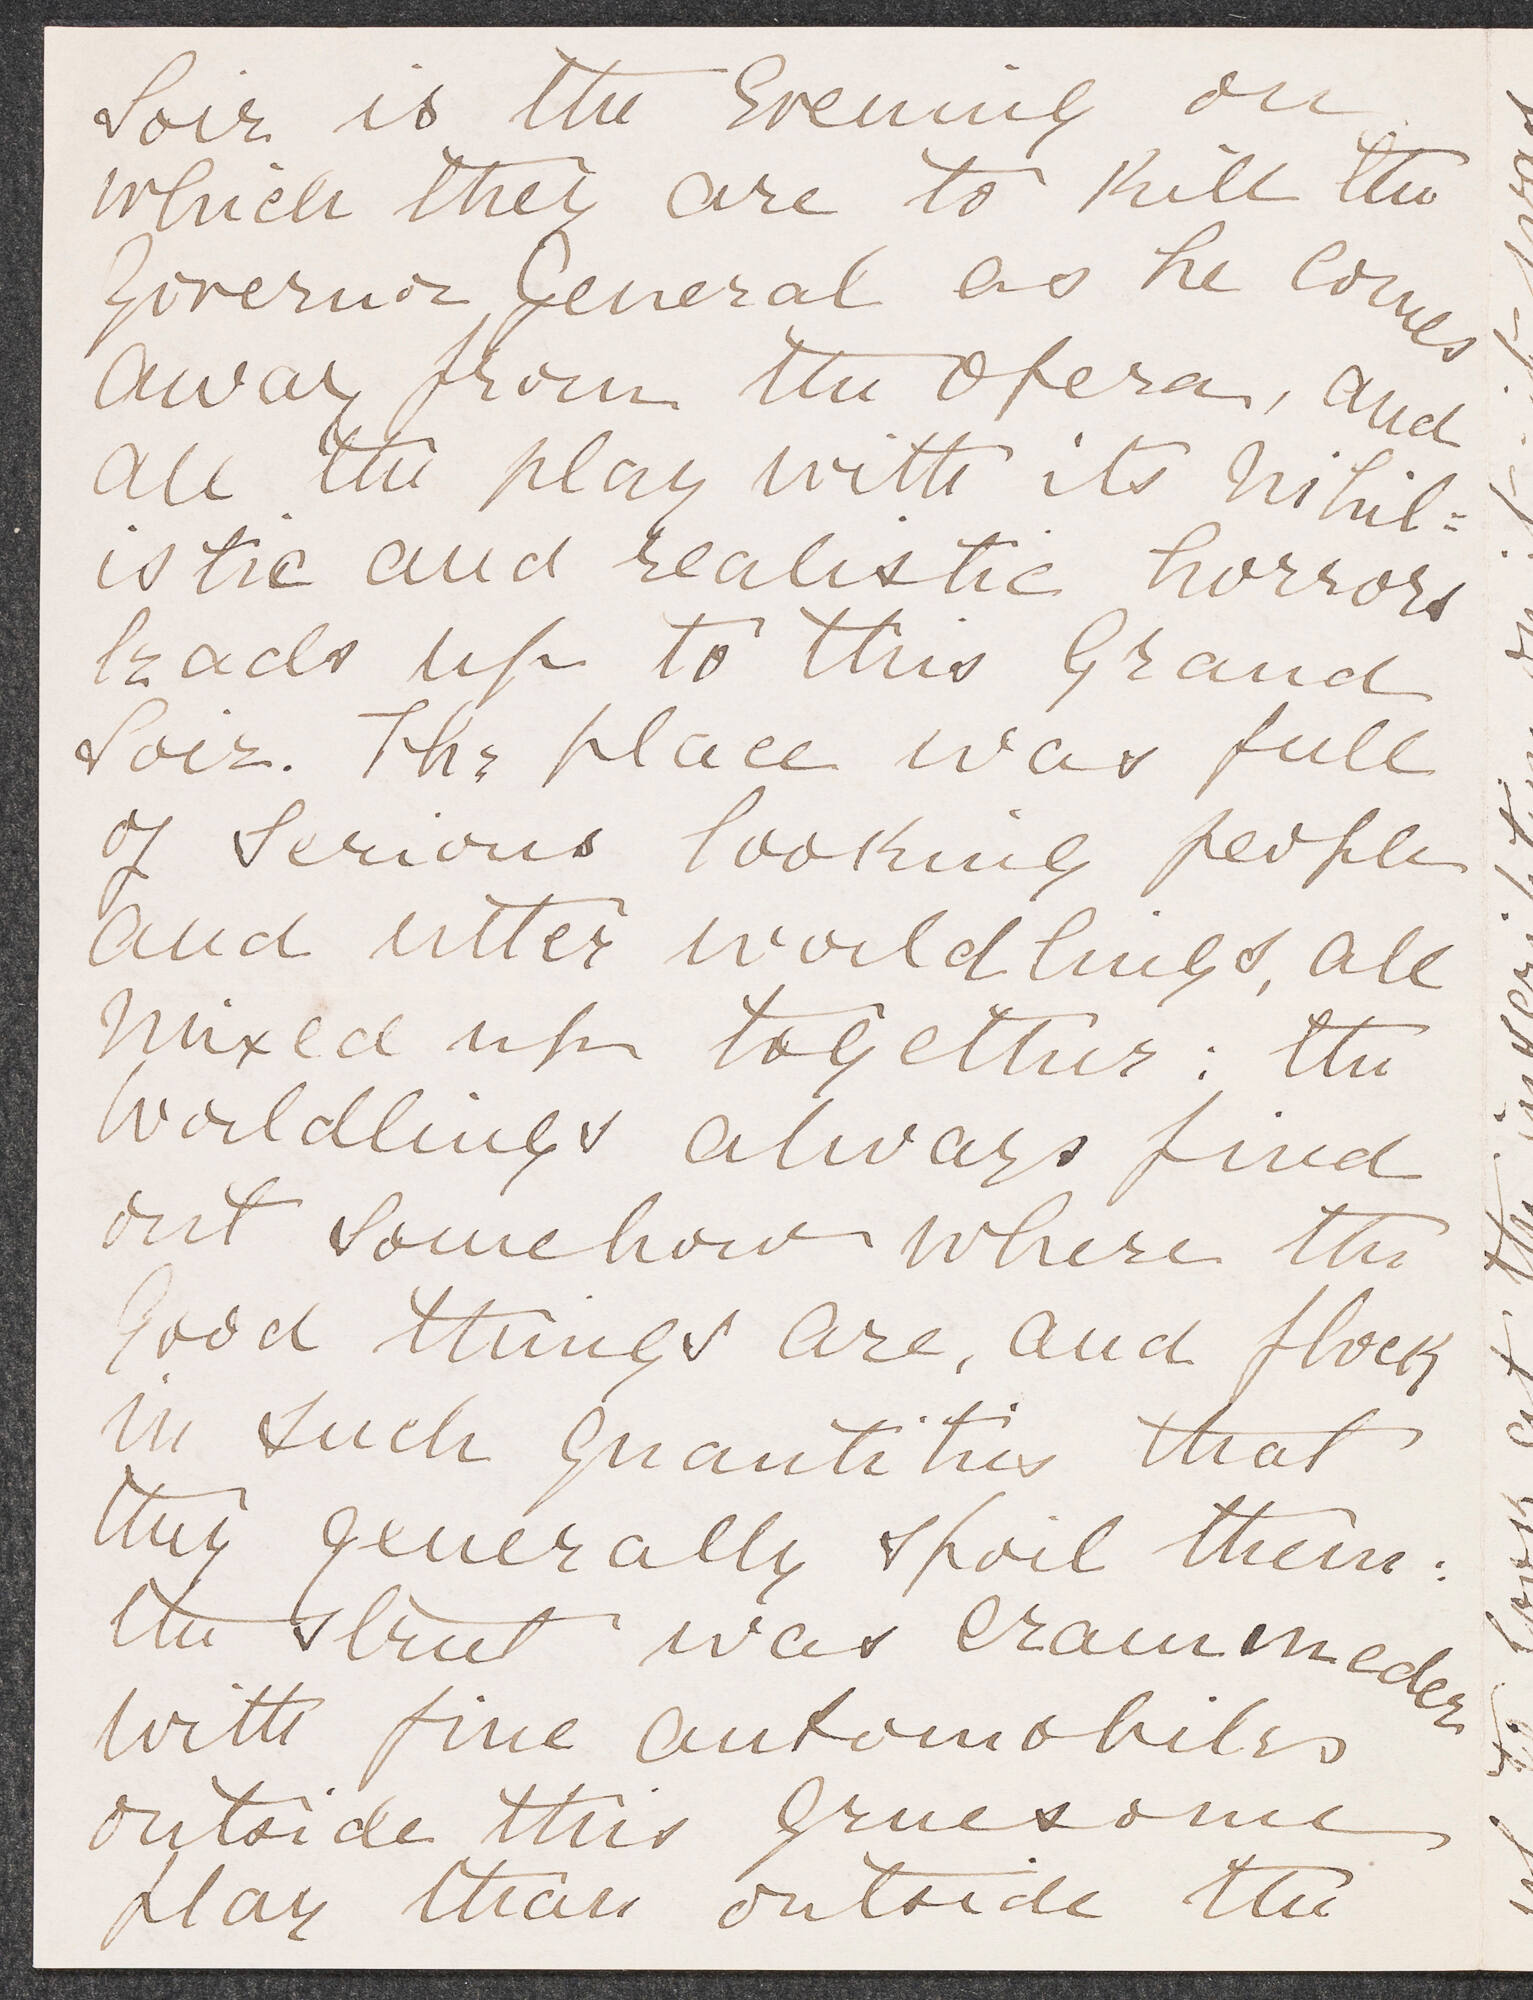 Soir is the Evening on
which they are to kill the
Governor General as he comes
away from the opera, and
all the play with its Nihil=
istic and realistic horrors
leads up to this Grand
Soir. The place was full
of serious looking people
and utter worldlings, all
mixed up together: the
worldlings always find
out somehow where the
good things are, and flock
in such quantities that
they generally spoil them:
the street was crammeder
with fine automobiles
outside this gruesome
play than outside the